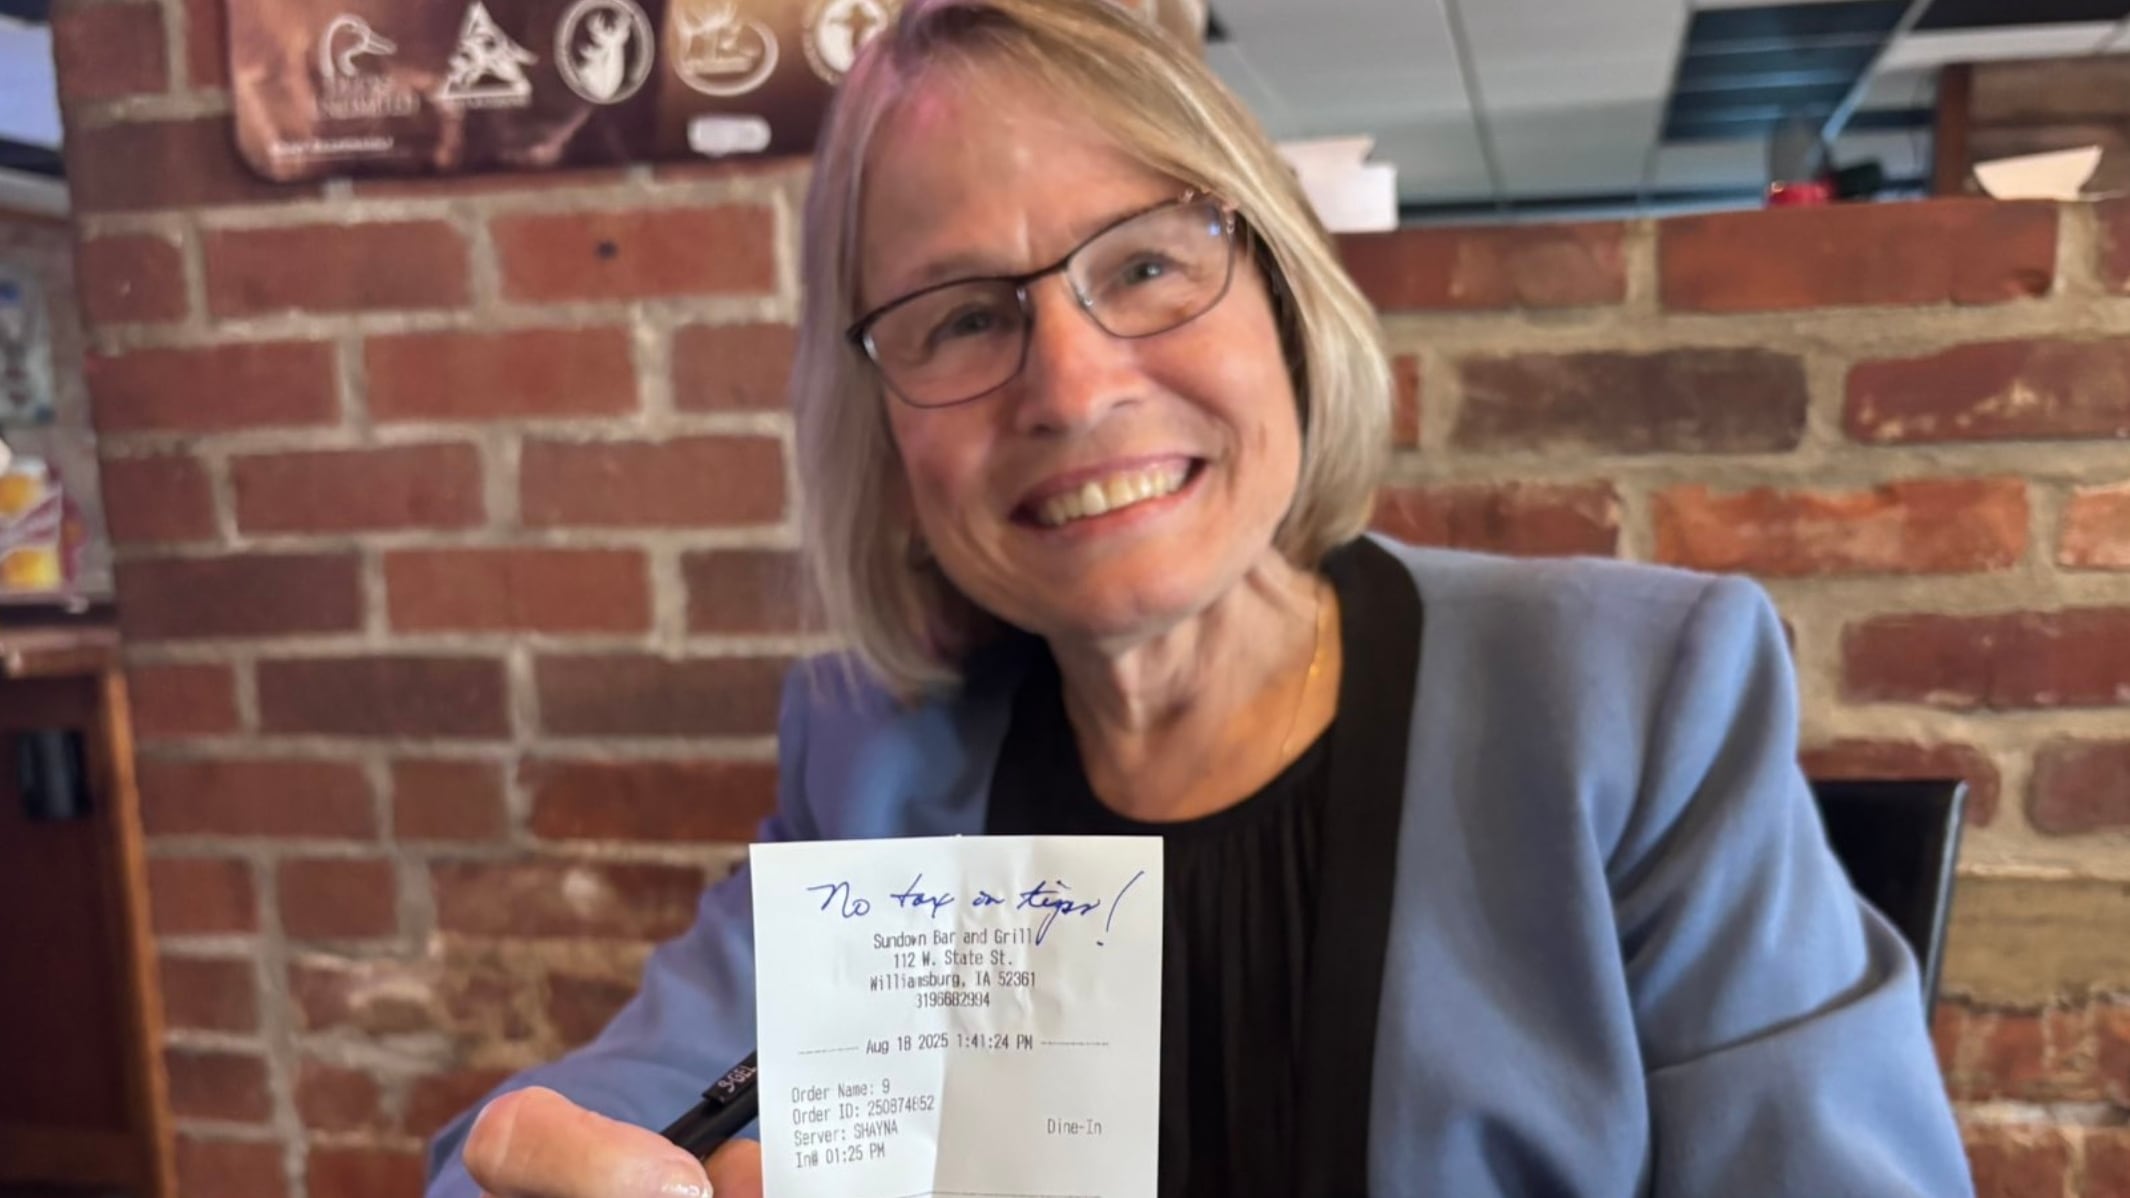 No tax on tips!
Sundown Bar and Grill
112 W. State St.
Williamsburg, IA 52361
3196682994
Aug 18 2025 1:41:24 PM
Order Name: 9
Order ID: 250874652
Server: SHAYNA
In# 01:25 PM
Dine-In
S-GEL